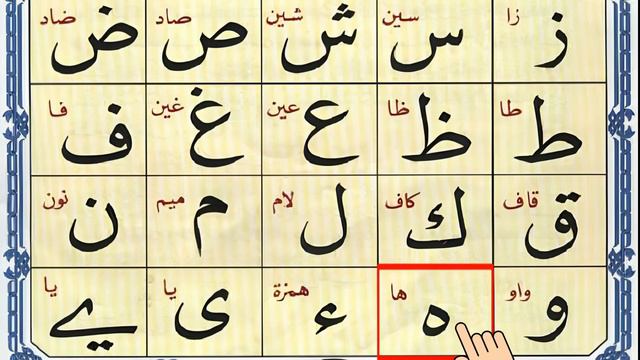 زا ز سين س شين ش صاد ص ضاد ض
طا ط ظا ظ عين ع غين غ فا ف
قاف ق كاف ك لام ل ميم م نون ن
واو و ها ه همزة ء يا ى يا ے